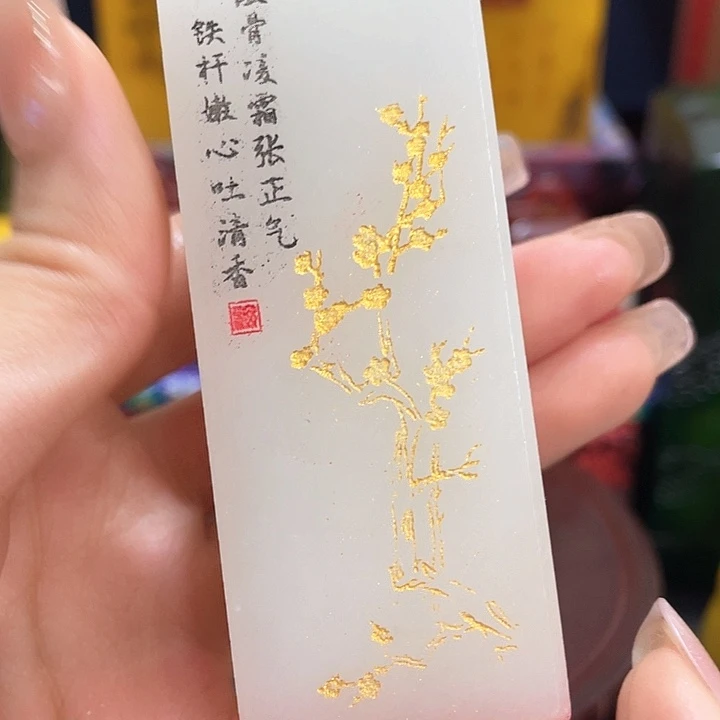 骨凌霜张正气
铁杆嫩心吐清香